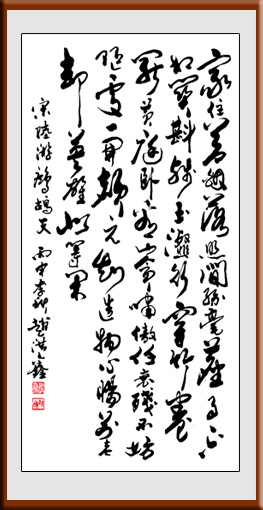 家住蒼煙落照間絲毫塵事不
相關斟殘玉瀣行穿竹卷
罷黃庭卧看山貪嘯傲任衰殘不妨
隨處一開顏元知造物心腸別老
却英雄似等閑
宋陸游鷓鴣天 丙申季秋 趙浩鑫